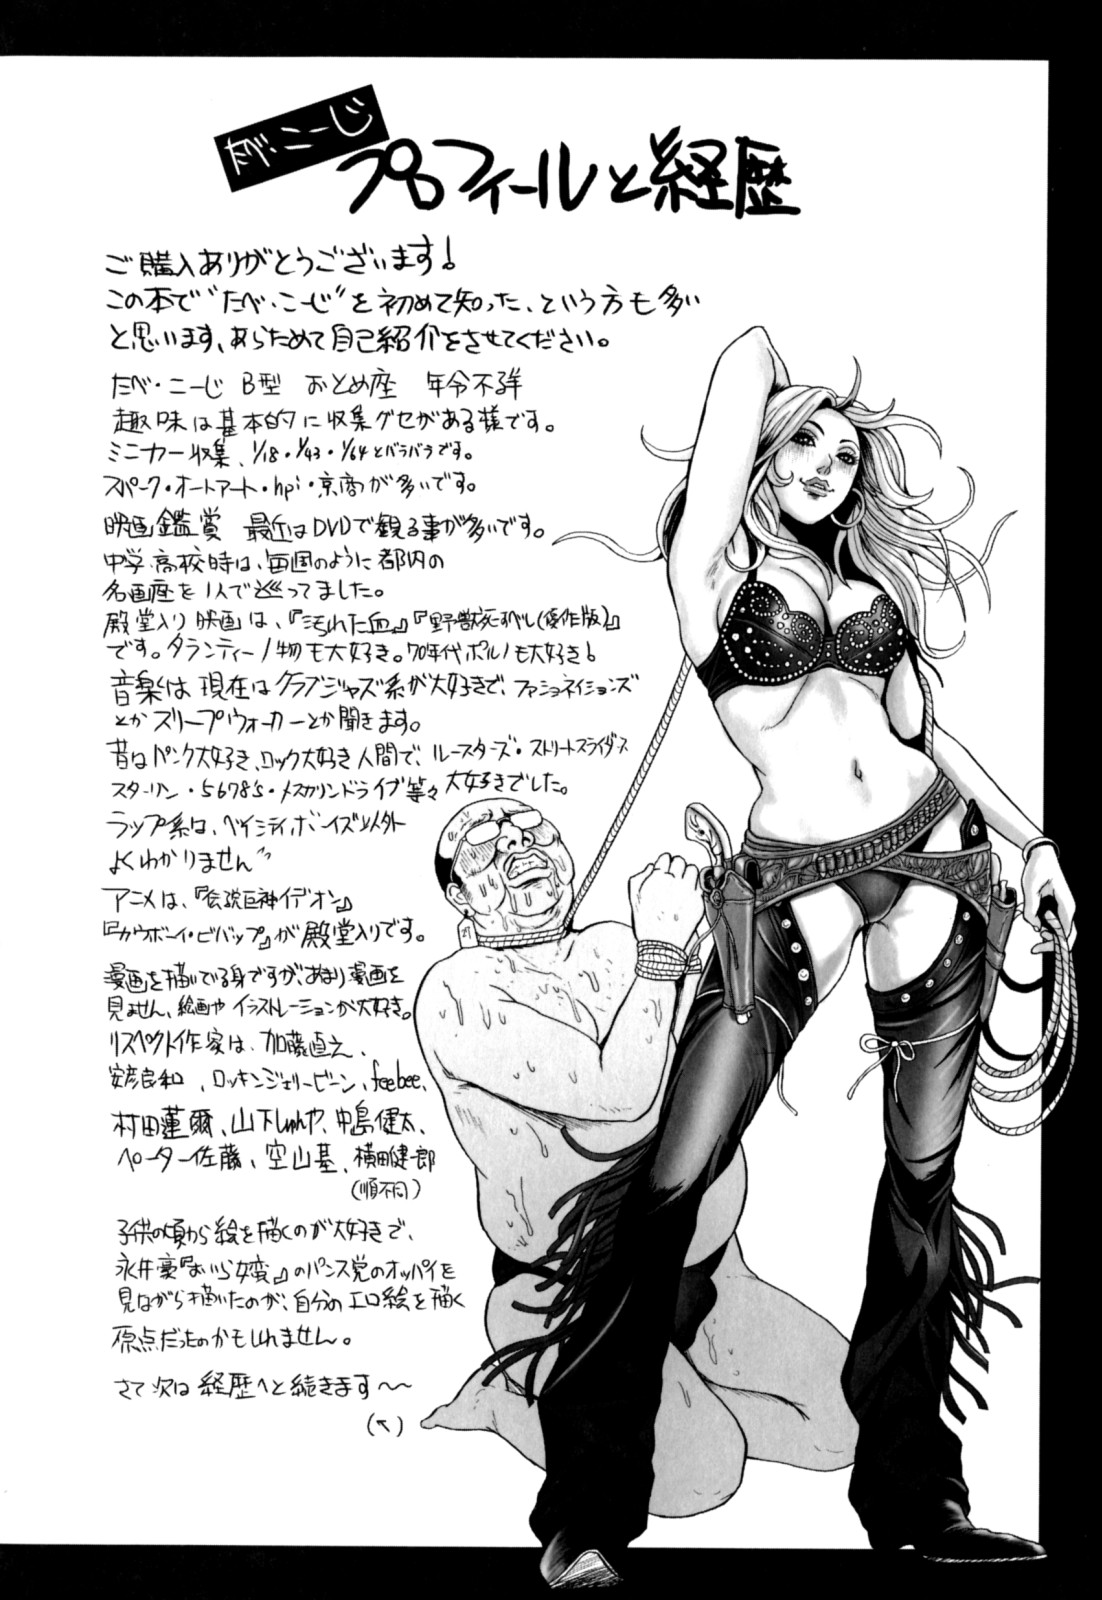 たべ・こーじ
プロフィールと経歴
ご購入ありがとうございます!
この本で“たべ・こーじ”を初めて知った、という方も多い
と思います、あらためて自己紹介をさせてください。
たべ・こーじ B型 おとめ座 年令不詳
趣味は基本的に収集グセがある様です。
ミニカー収集、1/18・1/43・1/64とバラバラです。
スパーク・オートアート・hpi・京商が多いです。
映画鑑賞 最近はDVDで観る事が多いです。
中学・高校時は、毎週のように都内の
名画座を1人で巡ってました。
殿堂入り映画は、『汚れた血』『野獣死すべし(優作版)』
です。タランティーノ物も大好き。70年代ポルノも大好き!
音楽は現在はクラブジャズ系が大好きで、ファショネイションズ
とかスリープウォーカーとか聞きます。
昔はパンク大好き、ロック大好き人間で、ルースターズ・ストリートスライダース
スターリン・5678's・メスカリンドライブ等々大好きでした。
ラップ系は、ベイシティボーイズ以外
よくわかりません〃
アニメは、『伝説巨神イデオン』
『カウボーイ・ビバップ』が殿堂入りです。
漫画を描いてる身ですが、あまり漫画を
見ません、絵画やイラストレーションが大好き。
リスペクト作家は、加藤直之、
安彦良和、ロッキンジェリービーン、feebee、
村田蓮爾、山下しゅんや、中島健太、
ペーター佐藤、空山基、横田健一郎
(順不同)
子供の頃から絵を描くのが大好きで、
永井豪『おいら女蛮』のパンス党のオッパイを
見ながら描いたのが、自分のエロ絵を描く
原点だったのかもしれません。
さて次は経歴へと続きます〜〜
(↖)